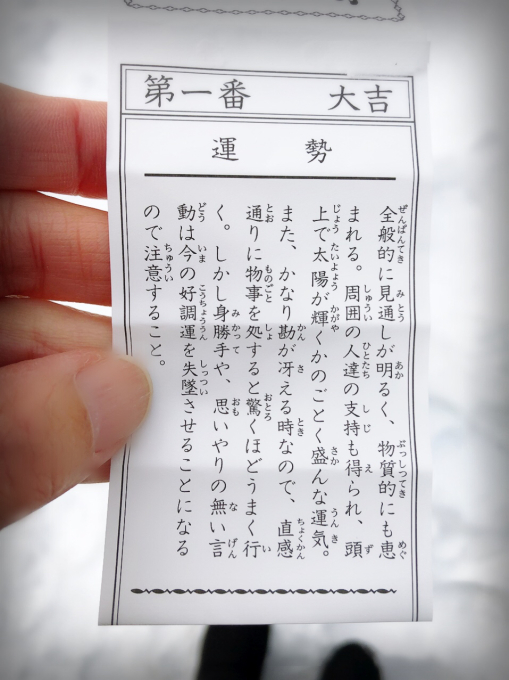 第一番 大吉
運勢
全般的に見通しが明るく、物質的にも恵
まれる。周囲の人達の支持も得られ、頭
上で太陽が輝くかのごとく盛んな運気。
また、かなり勘が冴える時なので、直感
通りに物事を処すると驚くほどうまく行
く。しかし身勝手や、思いやりの無い言
動は今の好調運を失墜させることになる
ので注意すること。